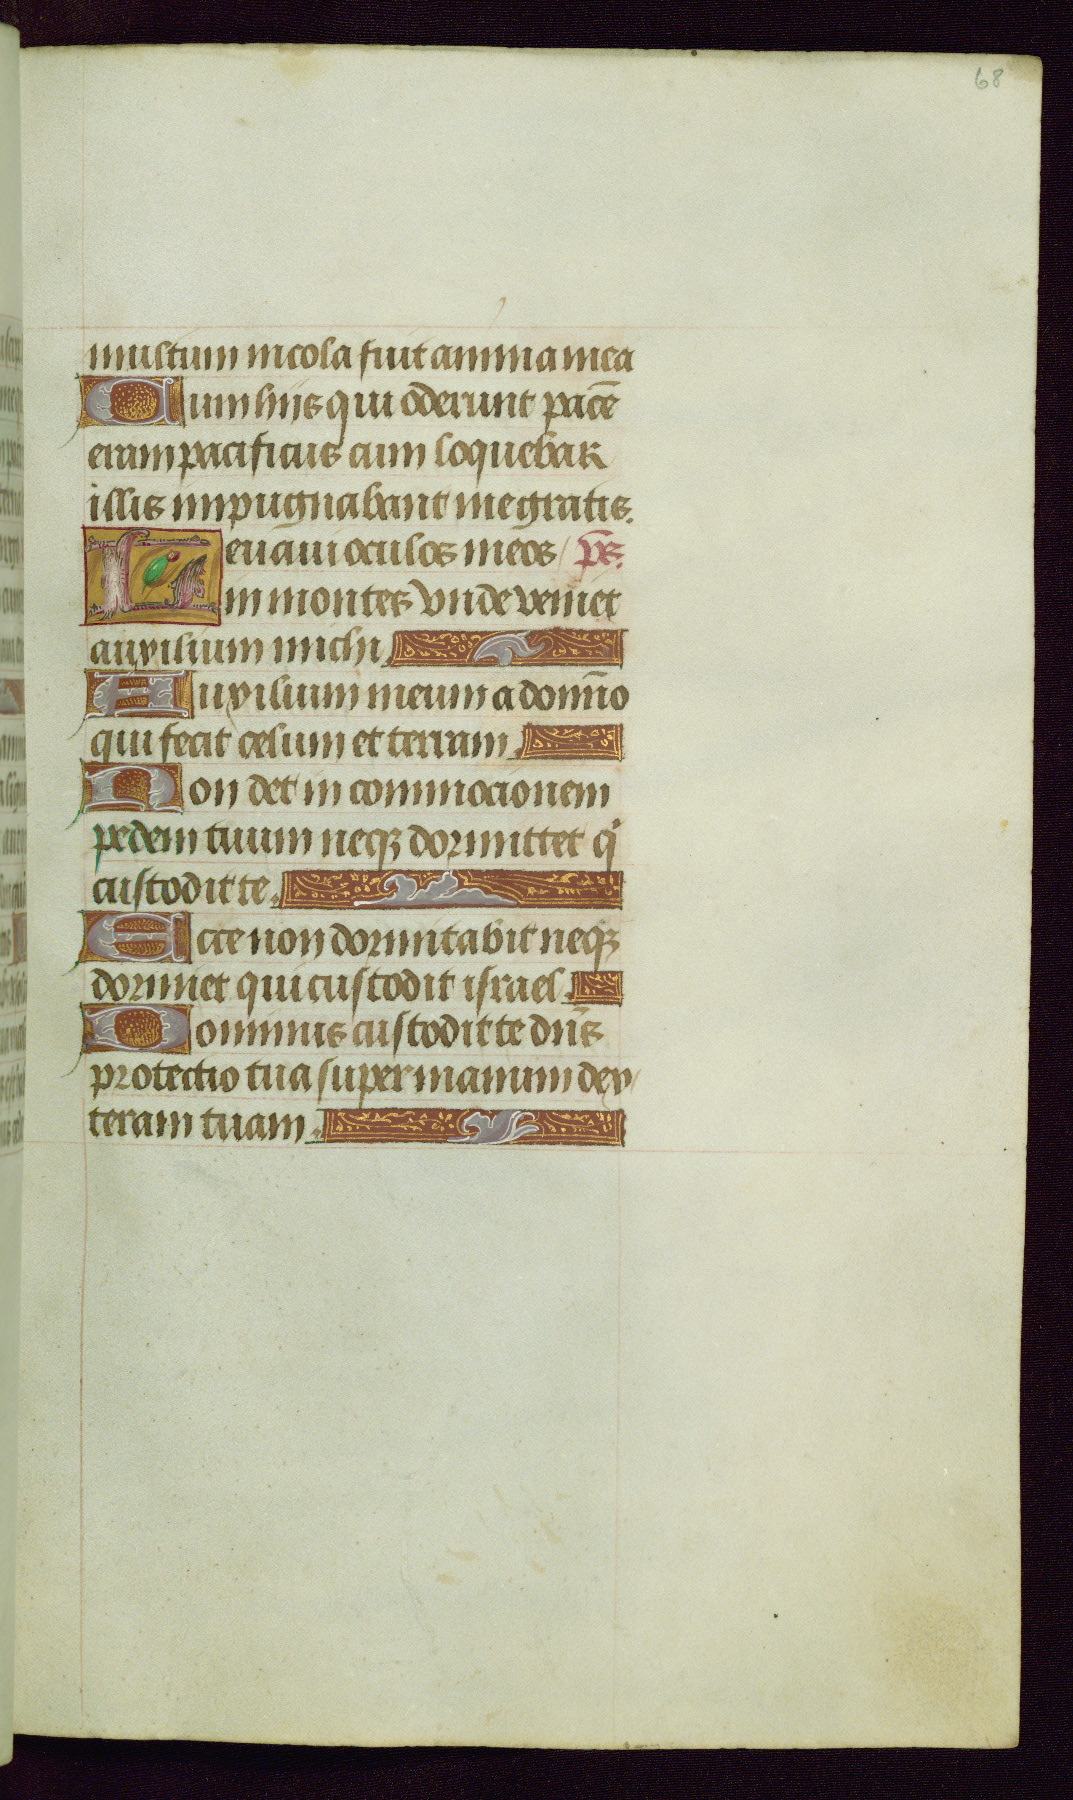 68
multum incola fuit anima mea
Cum hiis qui oderunt pacē
eram pacificus cum loquebar
illis impugnabant me gratis.
Levavi oculos meos / ps̄.
in montes vnde veniet
auxilium michi
Auxilium meum a domīo
qui fecit celum et terram
Non det in commocionem
pedem tuum neqꝫ dormittet qⁱ
custodit te.
Ecce non dormitabit neqꝫ
dormiet qui custodit israel.
Dominus custodit te dn̄s
protectio tua super manum dex/
teram tuam.